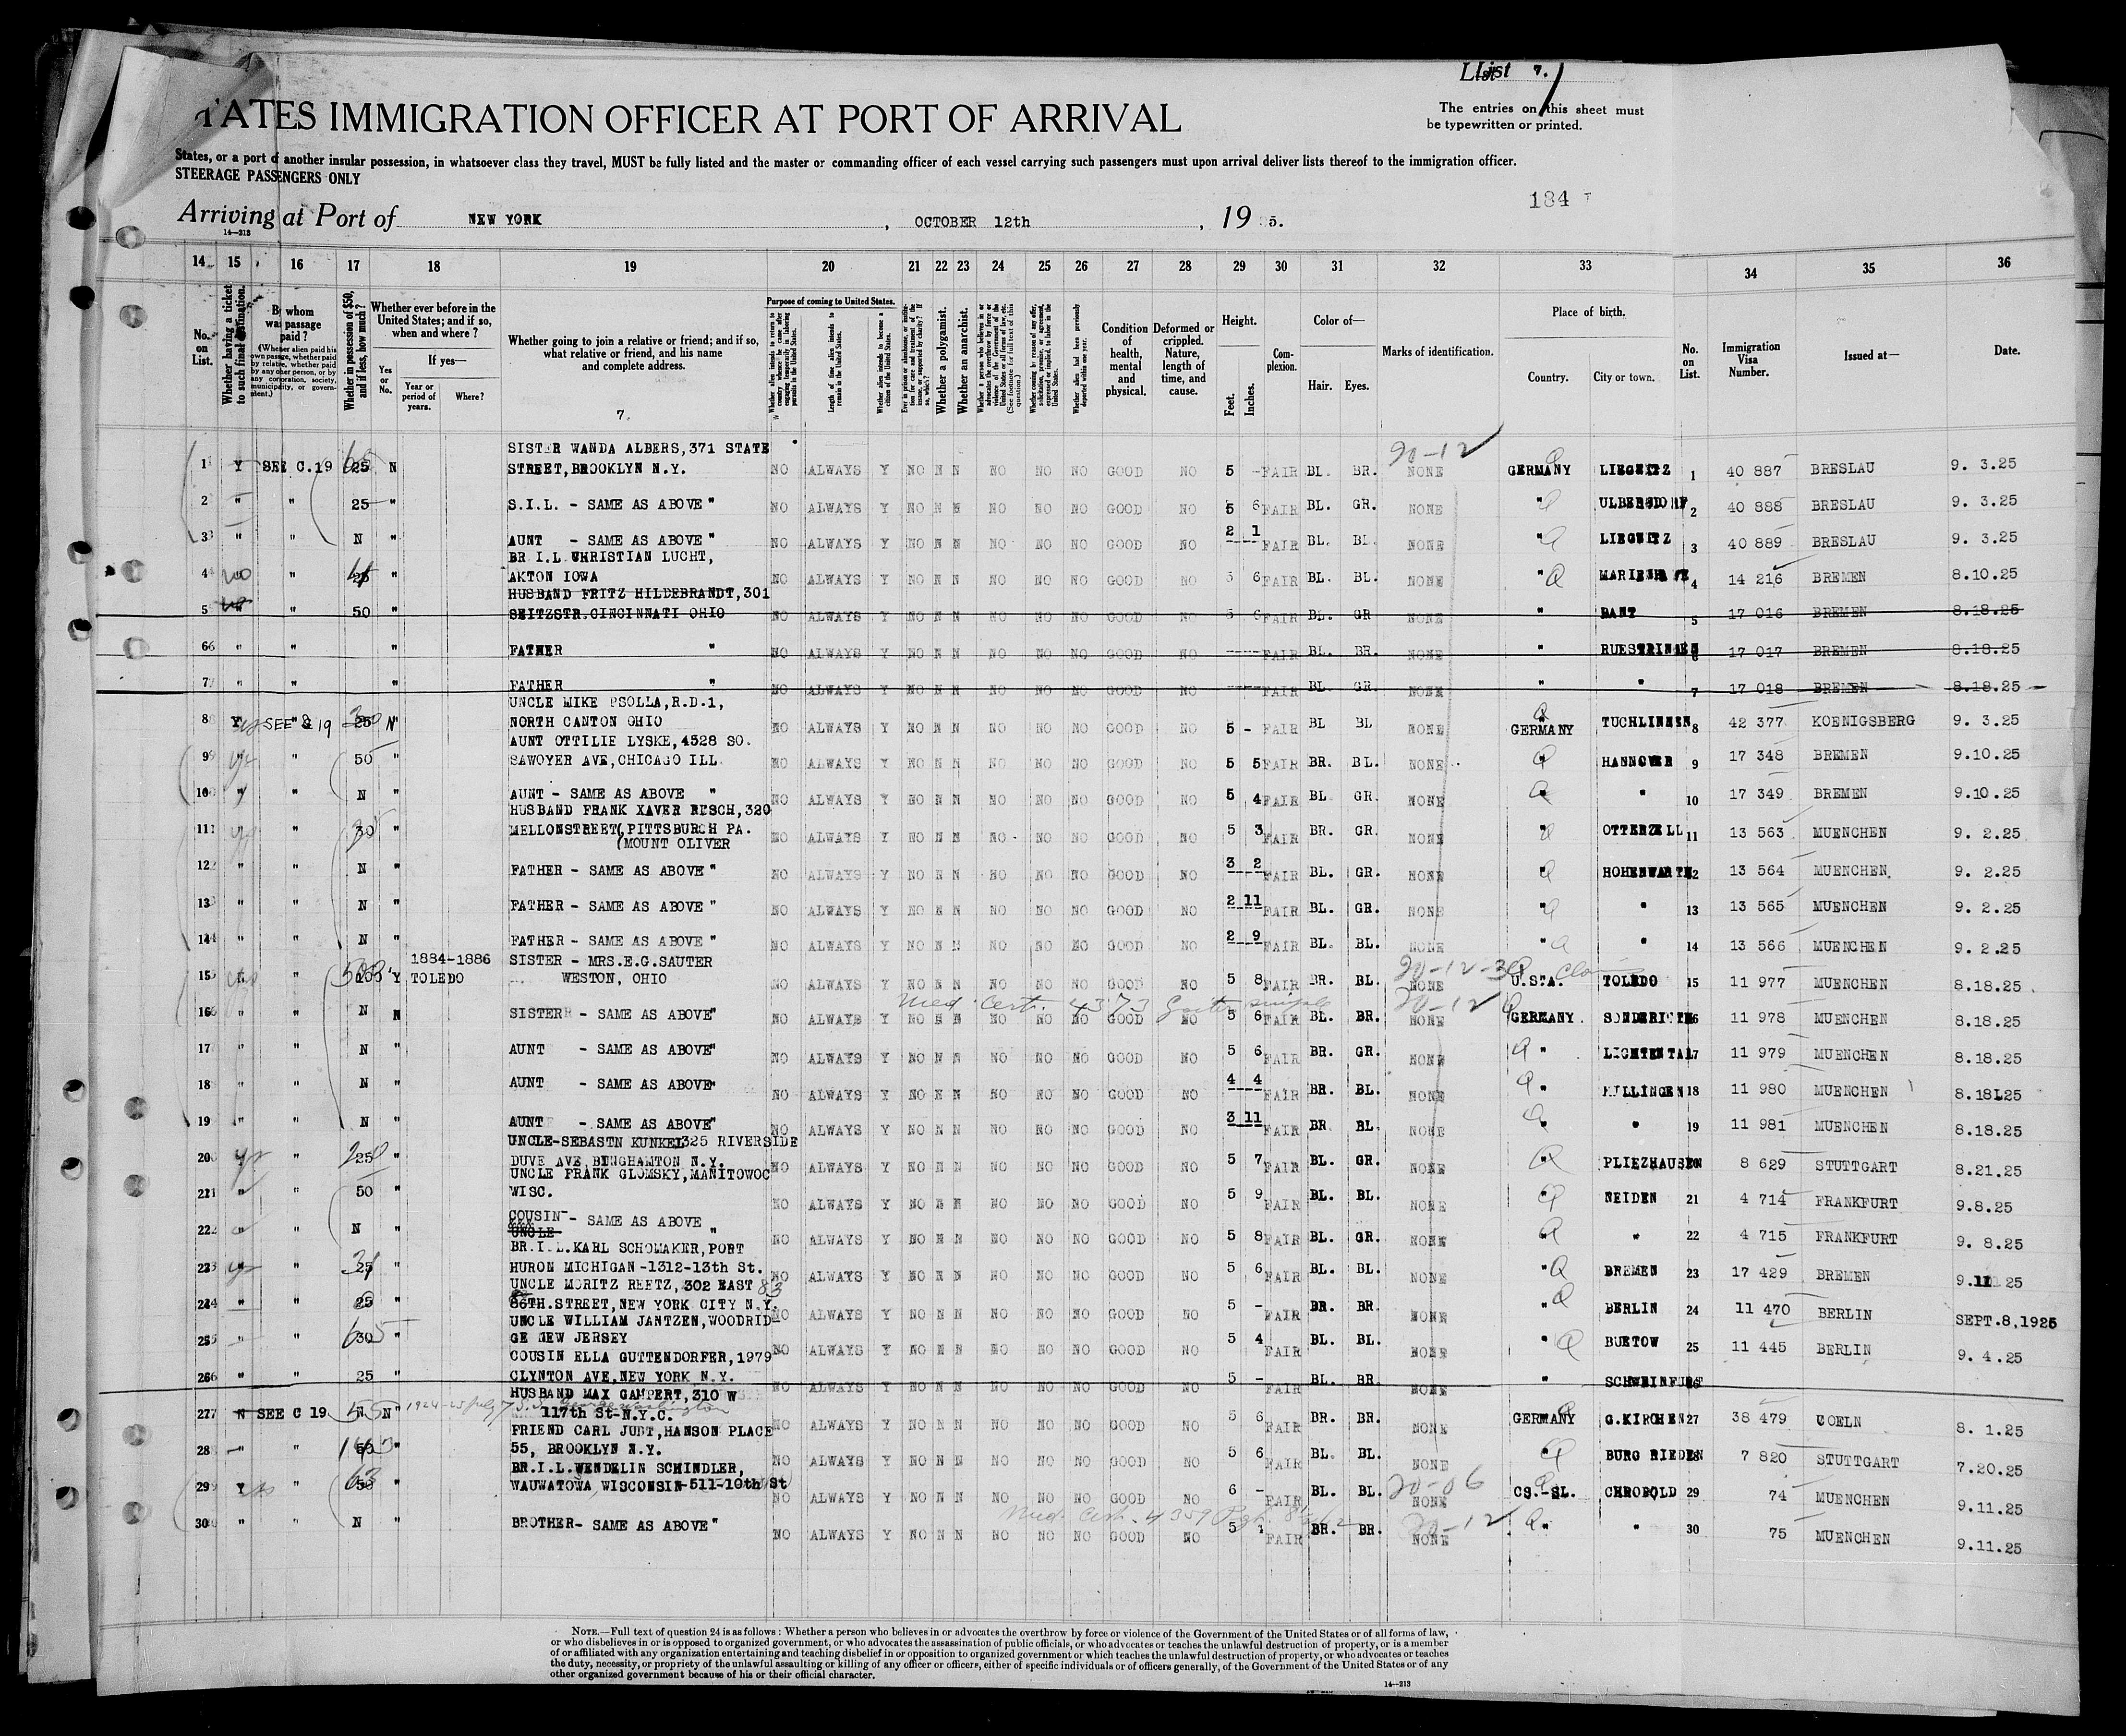 List 7.
The entries on this sheet must
be typewritten or printed.
TATES IMMIGRATION OFFICER AT PORT OF ARRIVAL
States, or a port of another insular possession, in whatsoever class they travel, MUST be fully listed and the master or commanding officer of each vessel carrying such passengers must upon arrival deliver lists thereof to the immigration officer.
STEERAGE PASSENGERS ONLY
184
Arriving at Port of NEW YORK, OCTOBER 12th, 19 5.
14-213
14 15 16 17 18 19 20 21 22 23 24 25 26 27 28 29 30 31 32 33 34 35 36
No. on List.
Whether having a ticket to such final destination.
By whom was passage paid?
(Whether alien paid his own passage, whether paid by relative, whether paid by any other person, or by any corporation, society, municipality, or government.)
Whether in possession of $50, and if less, how much?
Whether ever before in the United States; and if so, when and where?
Yes or No.
If yes—
Year or period of years.
Where?
Whether going to join a relative or friend; and if so, what relative or friend, and his name and complete address.
7.
Purpose of coming to United States.
Length of time alien intends to remain in the United States.
Whether alien intends to become a citizen of the United States.
Whether a polygamist.
Whether an anarchist.
Condition of health, mental and physical.
Deformed or crippled. Nature, length of time, and cause.
Height.
Feet. Inches.
Complexion.
Color of—
Hair. Eyes.
Marks of identification.
Place of birth.
Country. City or town.
No. on List.
Immigration Visa Number.
Issued at—
Date.
SISTER WANDA ALBERS, 371 STATE 20-12
1 Y SEE C.19 25 N STREET, BROOKLYN N.Y. NO ALWAYS Y NO N N NO NO NO GOOD NO 5 - FAIR BL. BR. NONE GERMANY LIEGNITZ 1 40 887 BRESLAU 9. 3.25
2 " " 25 " S.I.L. - SAME AS ABOVE " NO ALWAYS Y NO N N NO NO NO GOOD NO 5 6 FAIR BL. GR. NONE " ULBERSDORF 2 40 888 BRESLAU 9. 3.25
3 " " N " AUNT - SAME AS ABOVE " NO ALWAYS Y NO N N NO NO NO GOOD NO 2 1 FAIR BL. BL. NONE " LIEGNITZ 3 40 889 BRESLAU 9. 3.25
BR.I.L. CHRISTIAN LUCHT,
4 no " " AKTON IOWA NO ALWAYS Y NO N N NO NO NO GOOD NO 5 6 FAIR BL. BL. NONE " 4 14 216 BREMEN 8.10.25
HUSBAND FRITZ HILDEBRANDT, 301
5 " 50 " SEITZSTR. CINCINNATI OHIO NO ALWAYS Y NO N N NO NO NO GOOD NO 5 6 FAIR BL. GR NONE " BANT 5 17 016 BREMEN 8.18.25
6 " " " FATHER " NO ALWAYS Y NO N N NO NO NO GOOD NO ---- FAIR BL. BR. NONE " RUESTRINGEN 6 17 017 BREMEN 8.18.25
7 " " " FATHER " NO ALWAYS Y NO N N NO NO NO GOOD NO ---- FAIR BL. GR. NONE " " 7 17 018 BREMEN 8.18.25
UNCLE MIKE PSOLLA, R.D.1,
8 Y SEE 19 25 N NORTH CANTON OHIO NO ALWAYS Y NO N N NO NO NO GOOD NO 5 - FAIR BL BL NONE GERMANY TUCHLINNEN 8 42 377 KOENIGSBERG 9. 3.25
AUNT OTTILIE LYSKE, 4528 SO.
9 " 50 " SAWOYER AVE, CHICAGO ILL NO ALWAYS Y NO N N NO NO NO GOOD NO 5 5 FAIR BR. BL. NONE " HANNOVER 9 17 348 BREMEN 9.10.25
10 " " N " AUNT - SAME AS ABOVE " NO ALWAYS Y NO N N NO NO NO GOOD NO 5 4 FAIR BL GR. NONE " " 10 17 349 BREMEN 9.10.25
HUSBAND FRANK XAVER RESCH, 320
11 " 30 " MELLONSTREET, PITTSBURCH PA. NO ALWAYS Y NO N N NO NO NO GOOD NO 5 3 FAIR BR. GR. NONE " OTTENZELL 11 13 563 MUENCHEN 9. 2.25
(MOUNT OLIVER
12 " " N " FATHER - SAME AS ABOVE " NO ALWAYS Y NO N N NO NO NO GOOD NO 3 2 FAIR BL. GR. NONE " HOHENWARTH 12 13 564 MUENCHEN. 9. 2.25
13 " " N " FATHER - SAME AS ABOVE " NO ALWAYS Y NO N N NO NO NO GOOD NO 2 11 FAIR BL. GR. NONE " " 13 13 565 MUENCHEN 9. 2.25
14 " " N " FATHER - SAME AS ABOVE " NO ALWAYS Y NO N N NO NO NO GOOD NO 2 9 FAIR BL. BL. NONE " " 14 13 566 MUENCHEN 9. 2.25
1884-1886 SISTER - MRS.E.G.SAUTER 20-12-3
15 " Y TOLEDO WESTON, OHIO NO ALWAYS Y NO N N NO NO NO GOOD NO 5 8 FAIR BR. BL. NONE U.S.A. TOLEDO 15 11 977 MUENCHEN 8.18.25
Med. Cert. 4373 20-12
16 " " N N SISTER - SAME AS ABOVE " NO ALWAYS Y NO N N NO NO NO GOOD NO 5 6 FAIR BL. BR. NONE GERMANY 16 11 978 MUENCHEN 8.18.25
17 " " N " AUNT - SAME AS ABOVE " NO ALWAYS Y NO N N NO NO NO GOOD NO 5 6 FAIR BR. GR. NONE " LICHTENTAL 17 11 979 MUENCHEN 8.18.25
18 " " N " AUNT - SAME AS ABOVE " NO ALWAYS Y NO N N NO NO NO GOOD NO 4 4 FAIR BR. BL. NONE " 18 11 980 MUENCHEN 8.18.25
19 " " N " AUNT - SAME AS ABOVE " NO ALWAYS Y NO N N NO NO NO GOOD NO 3 11 FAIR BR BL. NONE " " 19 11 981 MUENCHEN 8.18.25
UNCLE-SEBASTN KUNKEL 325 RIVERSIDE
20 " " DUVE AVE BINGHAMTON N.Y. NO ALWAYS Y NO N N NO NO NO GOOD NO 5 7 FAIR BL. GR. NONE " PLIEZHAUSEN 8 629 STUTTGART 8.21.25
UNCLE FRANK GLOMSKY, MANITOWOC
21 " " 50 " WISC. NO ALWAYS Y NO N N NO NO NO GOOD NO 5 9 FAIR BL. BL. NONE " NEIDEN 21 4 714 FRANKFURT 9.8.25
22 " N " COUSIN - SAME AS ABOVE " NO ALWAYS Y NO N N NO NO NO GOOD NO 5 8 FAIR BL. GR. NONE " " 22 4 715 FRANKFURT 9. 8.25
UNCLE
BR.I.L.KARL SCHOMAKER, PORT
23 " 25 " HURON MICHIGAN-1312-13th St. NO ALWAYS Y NO N N NO NO NO GOOD NO 5 6 FAIR BL. BL. NONE " BREMEN 23 17 429 BREMEN 9.11 25
UNCLE MORITZ REETZ, 302 EAST 83
24 " 25 " 86TH.STREET, NEW YORK CITY N.Y. NO ALWAYS Y NO N N NO NO NO GOOD NO 5 - FAIR BR. BR. NONE " BERLIN 24 11 470 BERLIN SEPT.8,1925
UNCLE WILLIAM JANTZEN, WOODRID-
25 " " 30 " GE NEW JERSEY NO ALWAYS Y NO N N NO NO NO GOOD NO 5 4 FAIR BL. BL. NONE " BUETOW 25 11 445 BERLIN 9. 4.25
COUSIN ELLA GUTTENDORFER, 1979
26 " " 25 " CLYNTON AVE, NEW YORK N.Y. NO ALWAYS Y NO N N NO NO NO GOOD NO 5 - FAIR BL. BR. NONE " SCHWEINFURT
HUSBAND MAX GAMPERT, 310 W
27 N SEE C 19 N N 117th St-N.Y.C. NO ALWAYS Y NO N N NO NO NO GOOD NO 5 6 FAIR BR. BR. NONE GERMANY G.KIRCHEN 27 38 479 COELN 8. 1.25
FRIEND CARL JUDT, HANSON PLACE
28 " " 55, BROOKLYN N.Y. NO ALWAYS Y NO N N NO NO NO GOOD NO 5 6 FAIR BL. BL. NONE " BURG RIEDEN 7 820 STUTTGART 7.20.25
BR.I.L.WENDELIN SCHINDLER, 20-06
29 Y " 50 " WAUWATOWA, WISCONSIN-511-10th St NO ALWAYS Y NO N N NO NO NO GOOD NO 6 - FAIR BL. BL. NONE CS.-SL. CHROPOLD 29 74 MUENCHEN 9.11.25
Med. Cert. 4359 20-12
30 " " N " BROTHER- SAME AS ABOVE " NO ALWAYS Y NO N N NO NO NO GOOD NO 5 FAIR BR. BR. NONE " " 30 75 MUENCHEN 9.11.25
NOTE.—Full text of question 24 is as follows: Whether a person who believes in or advocates the overthrow by force or violence of the Government of the United States or of all forms of law,
or who disbelieves in or is opposed to organized government, or who advocates the assassination of public officials, or who advocates or teaches the unlawful destruction of property, or is a member
of or affiliated with any organization entertaining and teaching disbelief in or opposition to organized government or which teaches the unlawful destruction of property, or who advocates or teaches
the duty, necessity, or propriety of the unlawful assaulting or killing of any officer or officers, either of specific individuals or of officers generally, of the Government of the United States or of any
other organized government because of his or their official character.
14-213